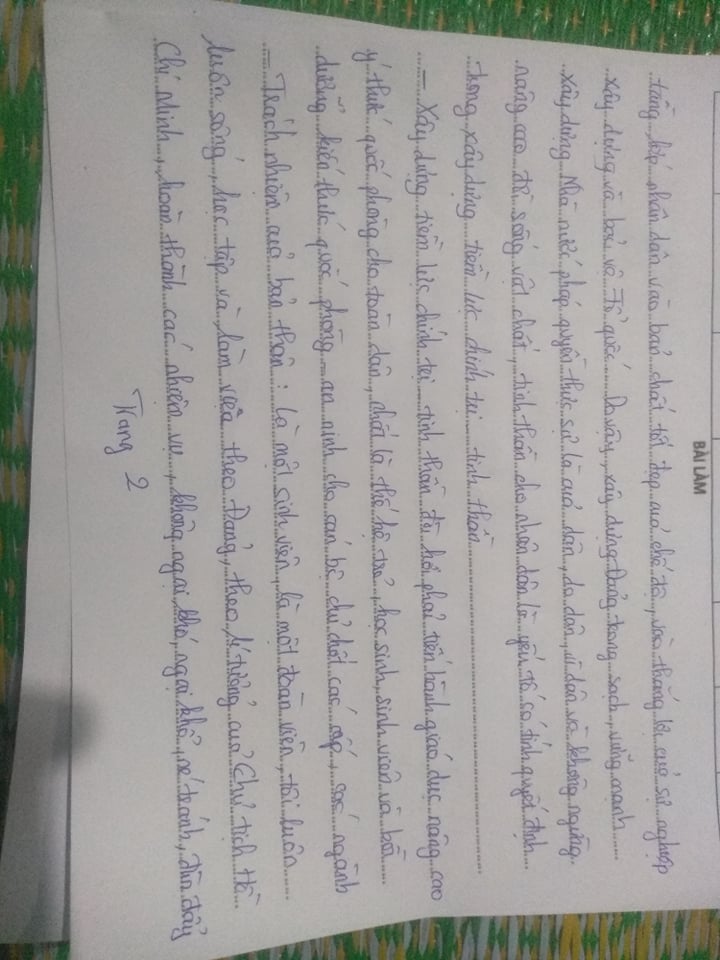 BÀI LÀM
tầng lớp nhân dân vào bản chất tốt đẹp của chế độ, vào thắng lợi của sự nghiệp
xây dựng và bảo vệ Tổ quốc. Do vậy, xây dựng Đảng trong sạch, vững mạnh
xây dựng Nhà nước pháp quyền thực sự là của dân, do dân, vì dân và không ngừng
nâng cao đời sống vật chất, tinh thần cho nhân dân là yếu tố có tính quyết định
trong xây dựng tiềm lực chính trị - tinh thần
- Xây dựng tiềm lực chính trị - tinh thần đòi hỏi phải tiến hành giáo dục nâng cao
ý thức quốc phòng cho toàn dân, nhất là thế hệ trẻ, học sinh, sinh viên và bồi
dưỡng kiến thức quốc phòng - an ninh cho cán bộ chủ chốt các cấp, các ngành
- Trách nhiệm của bản thân : Là một sinh viên, là một đoàn viên, tôi luôn
luôn sống, học tập và làm việc theo Đảng, theo lí tưởng của Chủ tịch Hồ
Chí Minh, hoàn thành các nhiệm vụ, không ngại khó, ngại khổ, né tránh, đùn đẩy
Trang 2